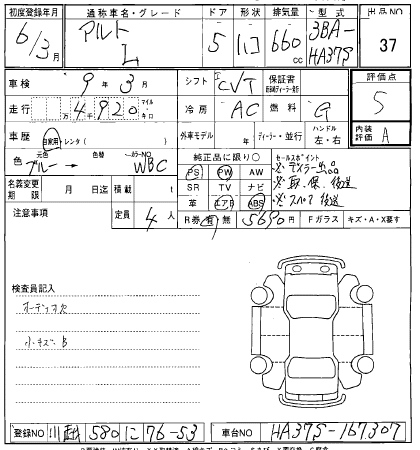 初度登録年月 通称車名・グレード ドア 形状 排気量 型式 出品NO
6/3月 アルト L 5 ハコ 660cc 3BA-HA37S 37
車検 9年3月 シフト CVT 保証書 評価点 5
走行 4千920 マイル キロ 冷房 AC 燃料 G
車歴 自家用・レンタ( ) 外車モデル ディーラー・並行 ハンドル 左・右 内装評価 A
色 元色 ブルー → 色替 カラーNO WBC 純正品に限り○ セールスポイント
PS PW AW
名義変更期限 月 日迄 積載 t SR TV ナビ ※取、保、後送
革 エアB ABS ※スペア 後送
注意事項 定員 4人 R券 有 無 5690円 Fガラス キズ・A・X要す
検査員記入
オーディオ欠
小キズ・B
登録NO 川越 580 に 76-53 車台NO HA37S-167307